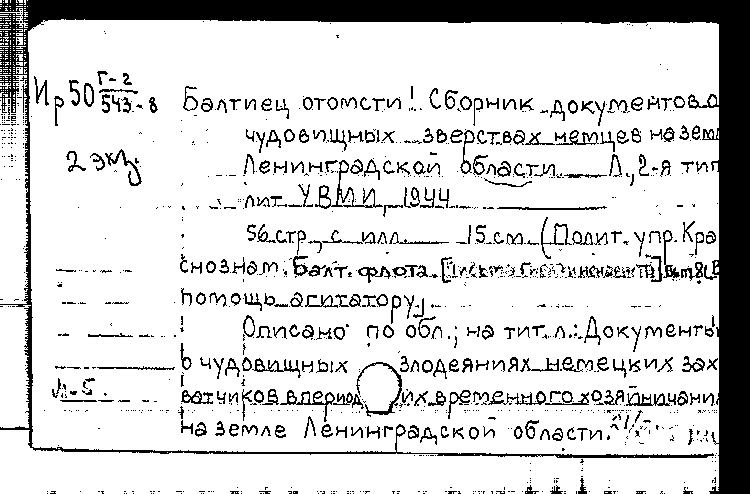 Ир50 Г-2/543-8
Балтиец отомсти! Сборник документов о
2 экз.
чудовищных зверствах немцев на зем
Ленинградской области Л., 2-я тип
лит УВМИ, 1944
56 стр., с илл. 15 см. (Полит. упр. Кра
снознам. Балт. флота.
помощь агитатору)
Описано по обл.; на тит. л.: Документы
о чудовищных злодеяниях немецких зах
ватчиков в период их временного хозяйничания
на земле Ленинградской области.